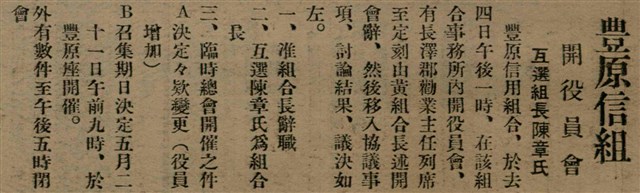 豐原信組
開役員會
互選組長陳章氏
豐原信用組合、於去
四日午後一時、在該組
合事務所內開役員會、
有長澤郡勸業主任列席
至定刻由黃組合長述開
會辭、然後移入協議事
項、討論結果、議決如
左。
一、准組合長辭職
二、互選陳章氏爲組合
長
三、臨時總會開催之件
A決定々欵變更（役員
增加）
B召集期日決定五月二
十一日午前九時、於
豐原座開催。
外有數件至午後五時閉
會